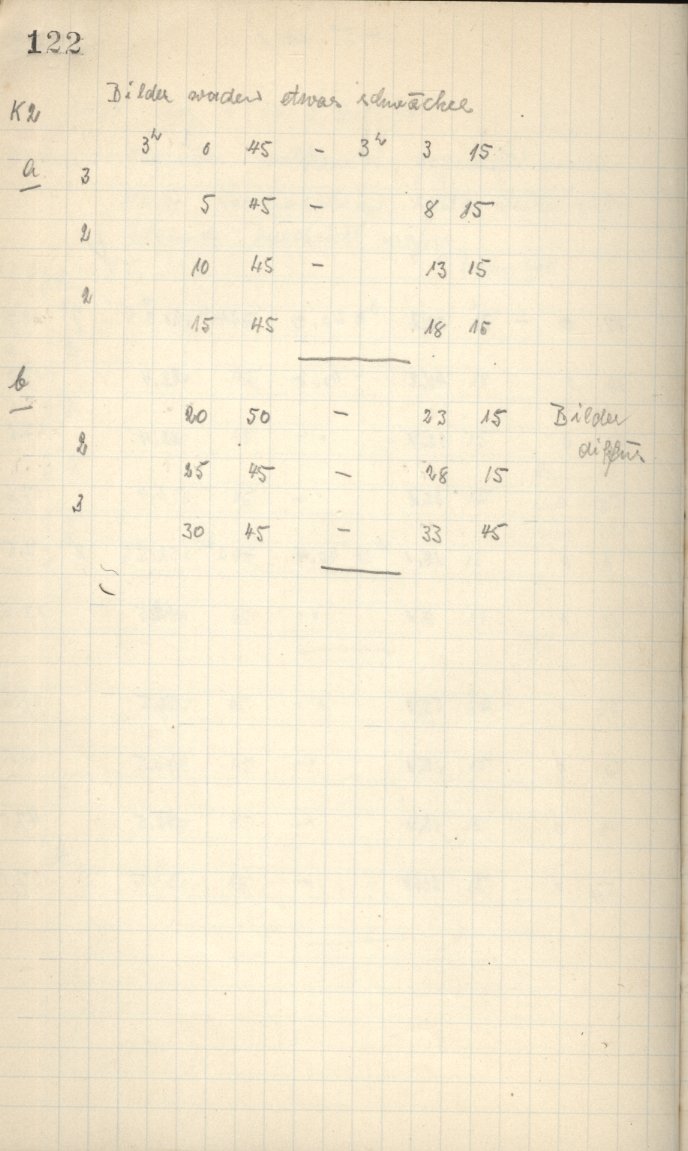 122
Bilder werden etwas schwächer
K2
3h 0 45 - 3h 3 15
a 3
5 45 - 8 15
2
10 45 - 13 15
2
15 45 18 15
b
20 50 - 23 15 Bilder
diffus
2
25 45 - 28 15
3
30 45 - 33 45